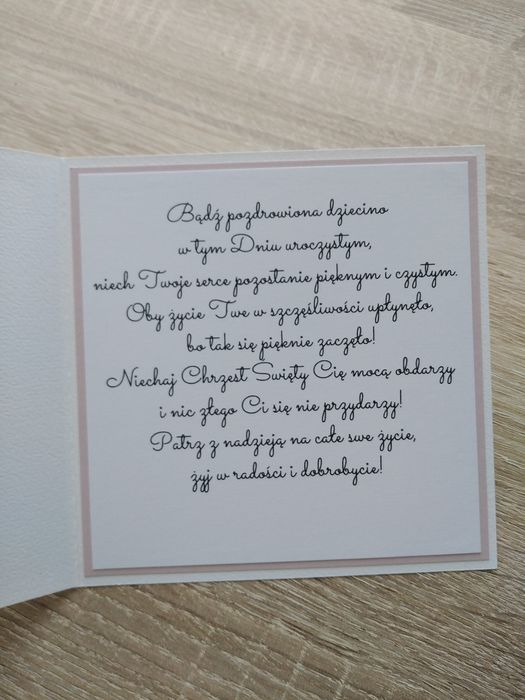 Bądź pozdrowiona dziecino
w tym Dniu uroczystym,
niech Twoje serce pozostanie pięknym i czystym.
Oby życie Twe w szczęśliwości upłynęło,
bo tak się pięknie zaczęło!
Niechaj Chrzest Swięty Cię mocą obdarzy
i nic złego Ci się nie przydarzy!
Patrz z nadzieją na całe swe życie,
żyj w radości i dobrobycie!